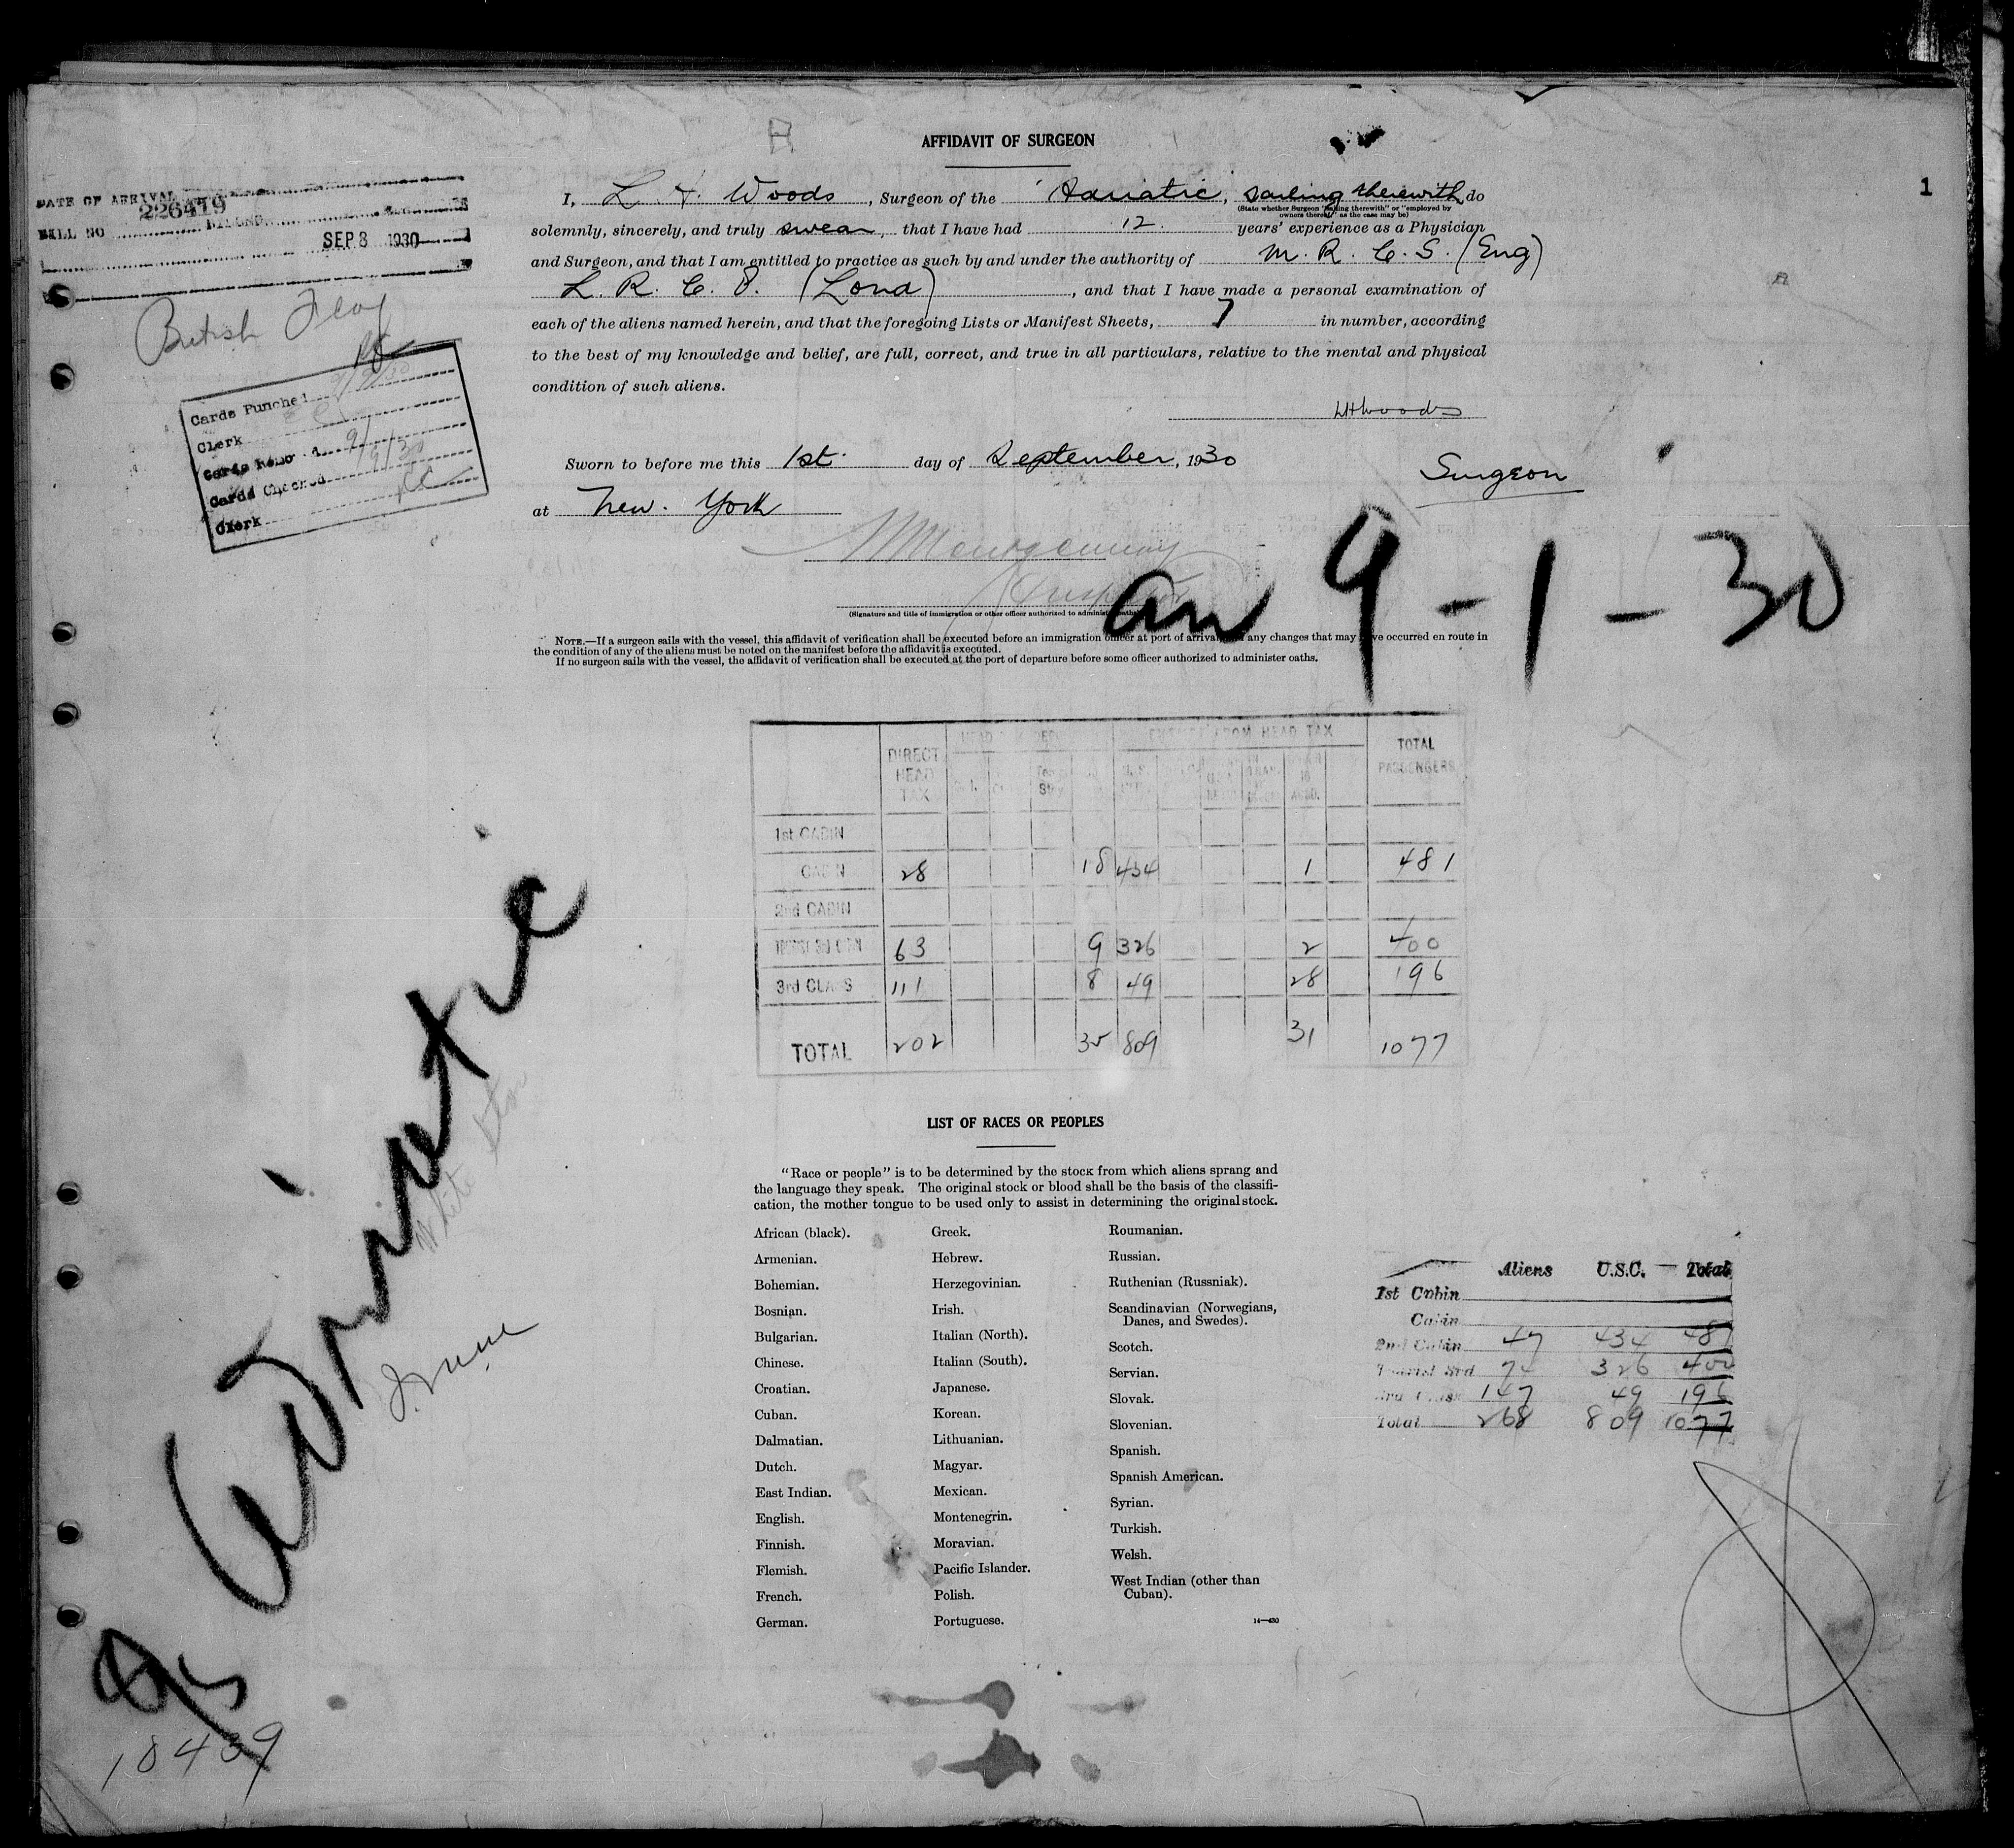 AFFIDAVIT OF SURGEON
1
DATE OF ARRIVAL
226419
BILL NO
SEP 8 1930
British Flag
Cards Punched
Clerk
Cards Checked
Clerk
I, L. H. Woods, Surgeon of the "Adriatic, sailing therewith, do
(State whether Surgeon "sailing therewith" or "employed by
owners thereof," as the case may be)
solemnly, sincerely, and truly swear, that I have had 12 years' experience as a Physician
and Surgeon, and that I am entitled to practice as such by and under the authority of M. R. C. S. (Eng)
L. R. C. P. (Lond), and that I have made a personal examination of
each of the aliens named herein, and that the foregoing Lists or Manifest Sheets, 7 in number, according
to the best of my knowledge and belief, are full, correct, and true in all particulars, relative to the mental and physical
condition of such aliens.
LHWoods
Sworn to before me this 1st. day of September, 1930
Surgeon
at New. York
(Signature and title of immigration or other officer authorized to administer oaths)
9-1-30
NOTE.—If a surgeon sails with the vessel, this affidavit of verification shall be executed before an immigration officer at port of arrival any changes that may have occurred en route in
the condition of any of the aliens must be noted on the manifest before the affidavit is executed.
If no surgeon sails with the vessel, the affidavit of verification shall be executed at the port of departure before some officer authorized to administer oaths.
DIRECT HEAD TAX
FROM HEAD TAX
TOTAL PASSENGERS
1st CABIN
CABIN 28 18 434 1 481
2nd CABIN
TOURIST 3rd CBN 63 9 326 2 400
3rd CLASS 111 8 49 28 196
TOTAL 202 35 809 31 1077
Adriatic
White Star
LIST OF RACES OR PEOPLES
"Race or people" is to be determined by the stock from which aliens sprang and
the language they speak. The original stock or blood shall be the basis of the classifi-
cation, the mother tongue to be used only to assist in determining the original stock.
African (black).
Armenian.
Bohemian.
Bosnian.
Bulgarian.
Chinese.
Croatian.
Cuban.
Dalmatian.
Dutch.
East Indian.
English.
Finnish.
Flemish.
French.
German.
Greek.
Hebrew.
Herzegovinian.
Irish.
Italian (North).
Italian (South).
Japanese.
Korean.
Lithuanian.
Magyar.
Mexican.
Montenegrin.
Moravian.
Pacific Islander.
Polish.
Portuguese.
Roumanian.
Russian.
Ruthenian (Russniak).
Scandinavian (Norwegians,
Danes, and Swedes).
Scotch.
Servian.
Slovak.
Slovenian.
Spanish.
Spanish American.
Syrian.
Turkish.
Welsh.
West Indian (other than
Cuban).
14—430
Aliens U.S.C. Total
1st Cabin
Cabin
2nd Cabin 47 434 481
Tourist 3rd 74 326 400
3rd Class 147 49 196
Total 268 809 1077
18439